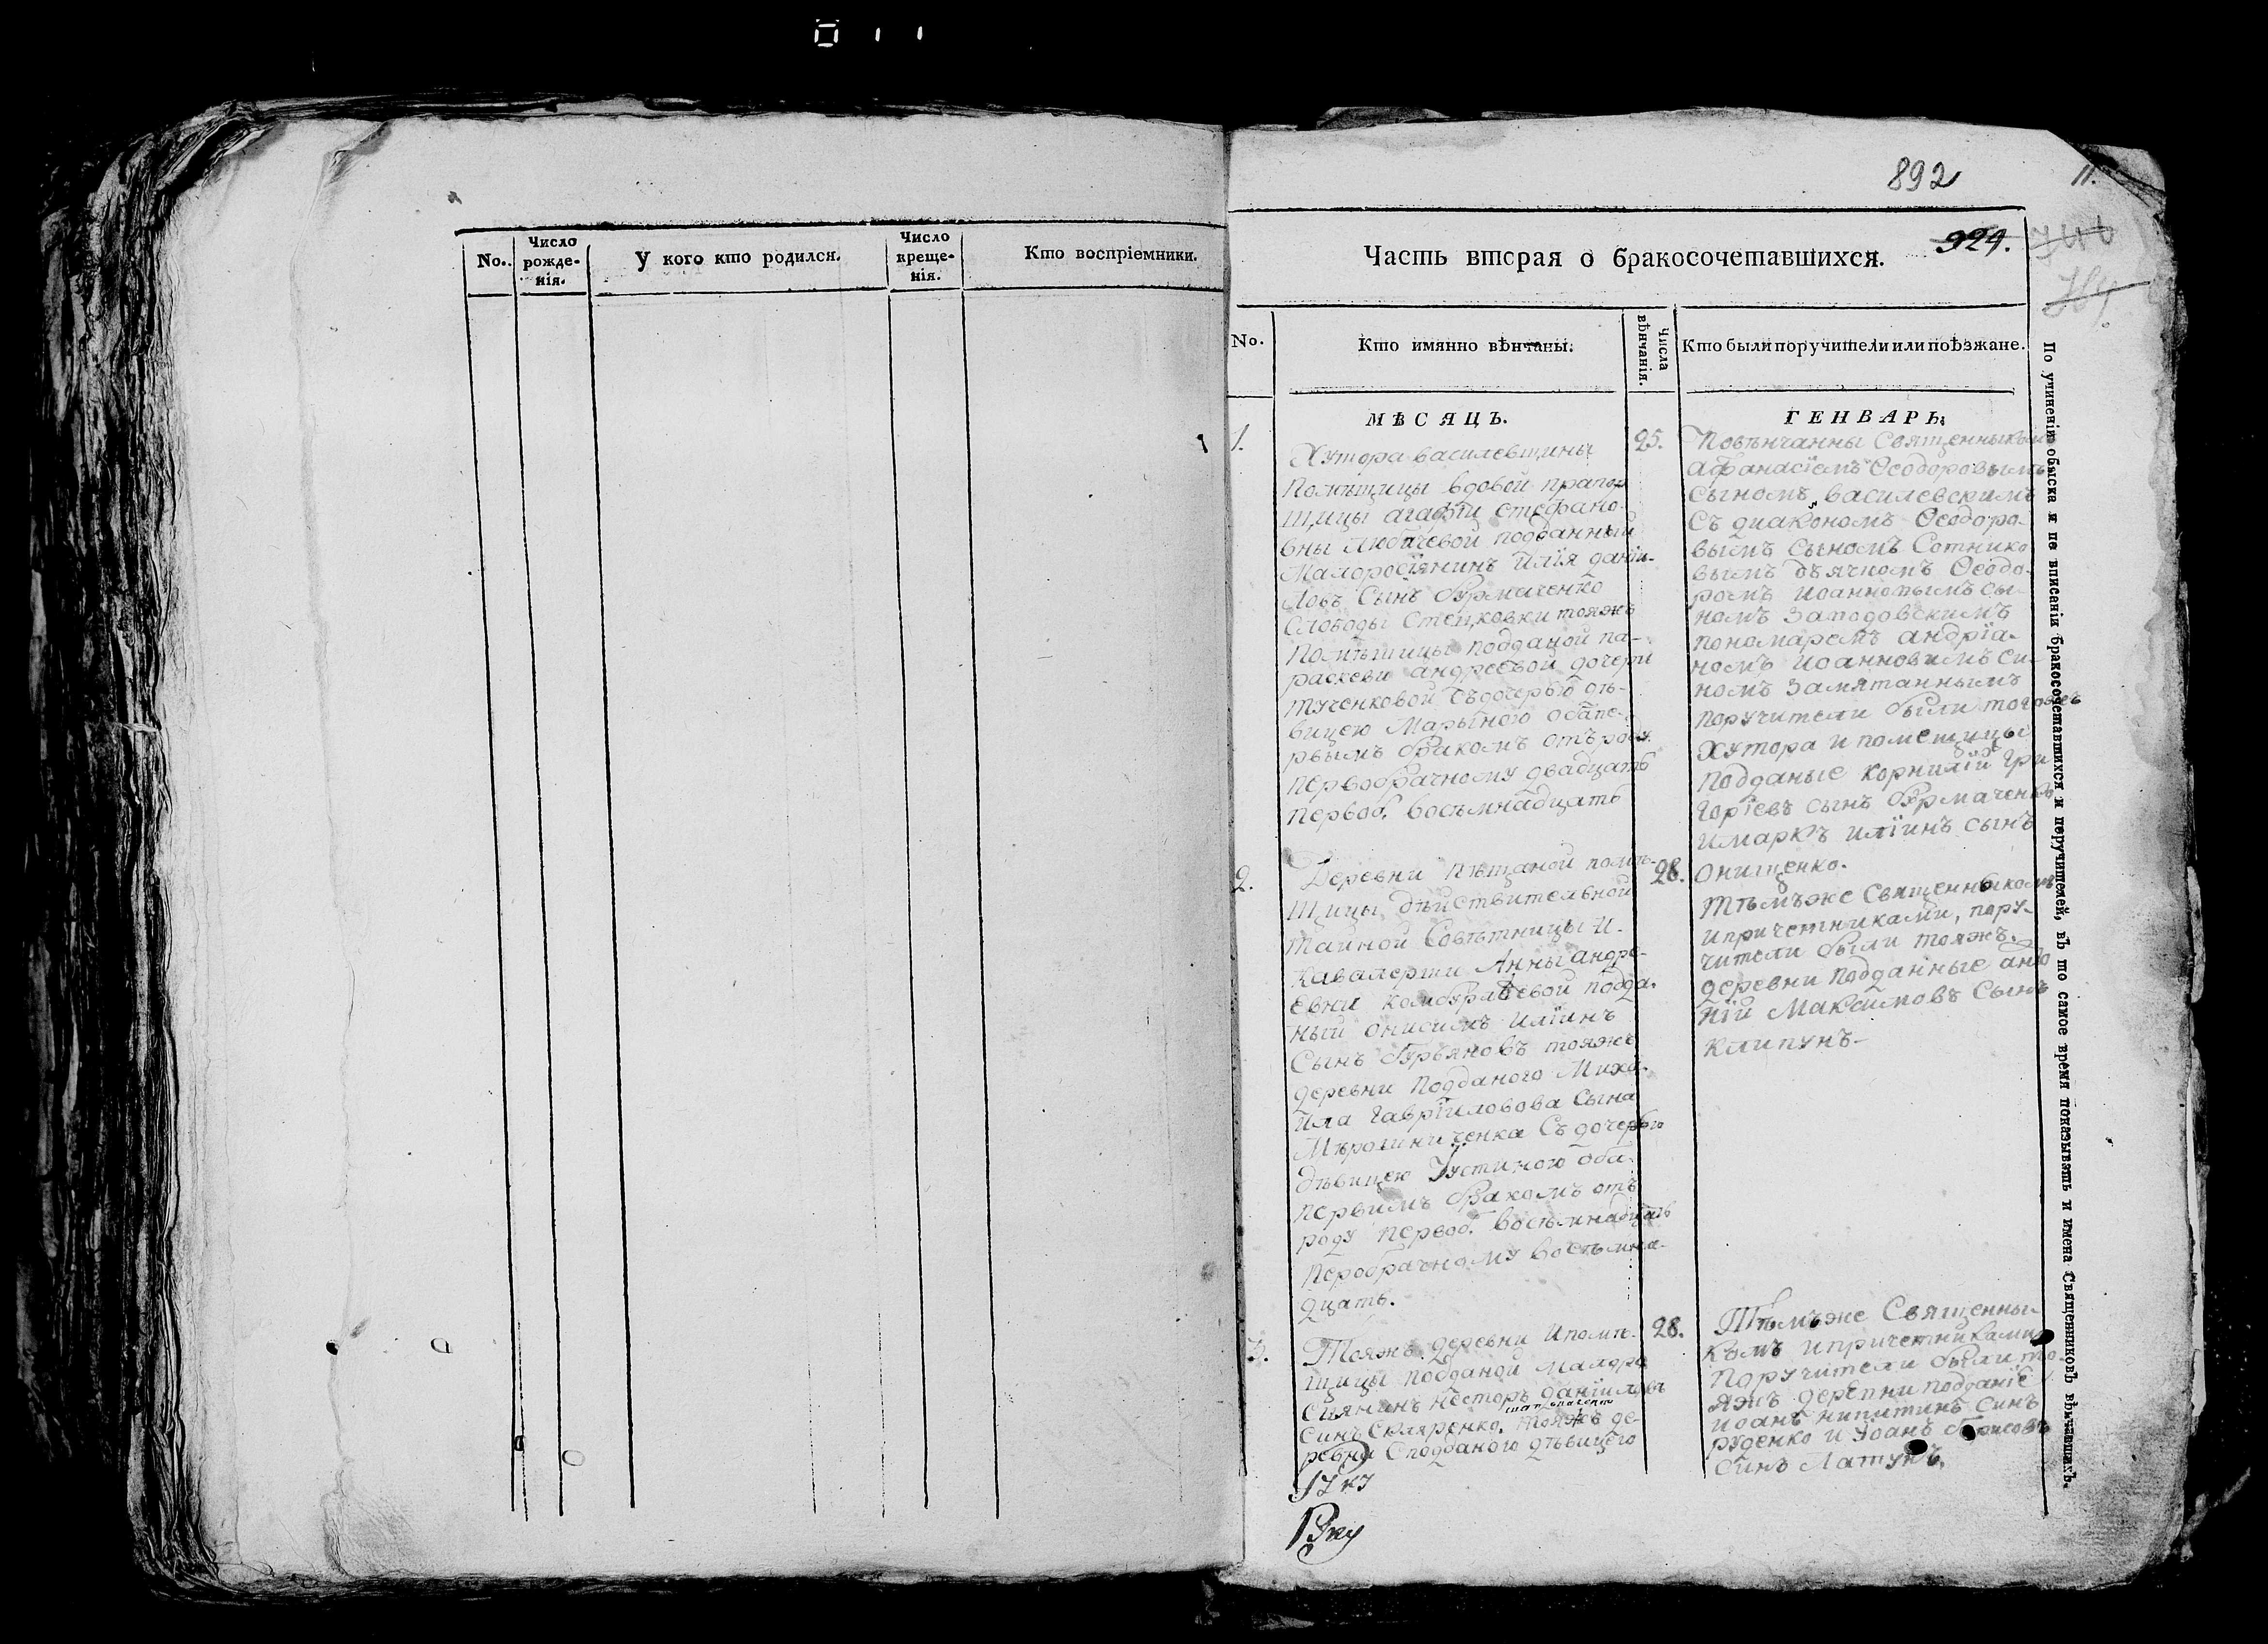 No.
Число рожденія.
У кого кто родился.
Число крещенія.
Кто воспріемники.
892
11.
924.
Часть втсрая о бракосочетавшихся.
No.
Кто имянно вѣнчаны.
Числа вѣнчанія.
Кто были поручители или поѣзжане.
МѢСЯЦЪ.
ГЕНВАРЬ.
1.
Хутора василевщины
Помѣщицы вдовой прапор
щицы агафіи стефано-
вны Любачевой подданный
Малоросіянинъ Илїя даніи-
ловъ Сынъ бурмаченко
Слободы Стецковки тояжъ
Помѣщицы подданой па-
раскеви андреевой дочери
тученковой съдочерью дѣ-
вицею Марыною обапе-
рвымъ бракомъ отъроду
первобрачному двадцать
первоб. восѣмнадцать
25.
Повѣнчанны Священныкомъ
афанасїемъ Ѳеодоровымъ
сыномъ василевскимъ
Съ диакономъ Ѳеодоро-
вымъ сыномъ Сотнико
вымъ дѣячкомъ Ѳеодо-
ромъ иоанновымъ сы-
номъ
пономаремъ андрїа-
номъ иоанновимъ си-
номъ Замятаннымъ
поручители были тогожъ
Хутора и помещицы
подданые корнилій Гри
горїевъ сынъ бурмаченко
имаркъ илїинъ сынъ
Онищенко.
2.
Деревни пѣщаной помѣ-
щицы дѣйствителвной
тайной Совѣтницы и
кавалерши Анны андре-
евни подда-
ный онисимъ илїинъ
Сынъ Гурьяновъ тояжъ
деревни подданого Миха-
ила гаврїиловова Сына
Съ дочерью
дѣвицею Устиною оба-
первимъ бракомъ отъ
роду первоб. восѣмнадцать
перобрачному восѣмна-
дцать.
28.
Тѣмъже Священныкомъ
ипричетниками, пору-
чители были тояжъ
деревни подданные ано
нїй Максимовъ Сынъ
клипунъ-
3.
Тояжъ деревни ипомѣ-
щицы подданой малоро
сиянинъ Несторъ данїиловъ
синъ Скляренко, тояжъ де-
ревни Сподданого дѣвицею
28.
Тѣмъже Священны-
комъ ипричетниками
Поручители были то-
яжъ деревни подданїе
иоанъ никитинъ синъ
руденко и Уоанъ борисовъ
Синъ Латунъ.
По учиненіи обыска и пс вписаніи бракосочетавшихся и перучителей, въ то самое время показывать и имена Священниковъ вѣнчавшихъ.